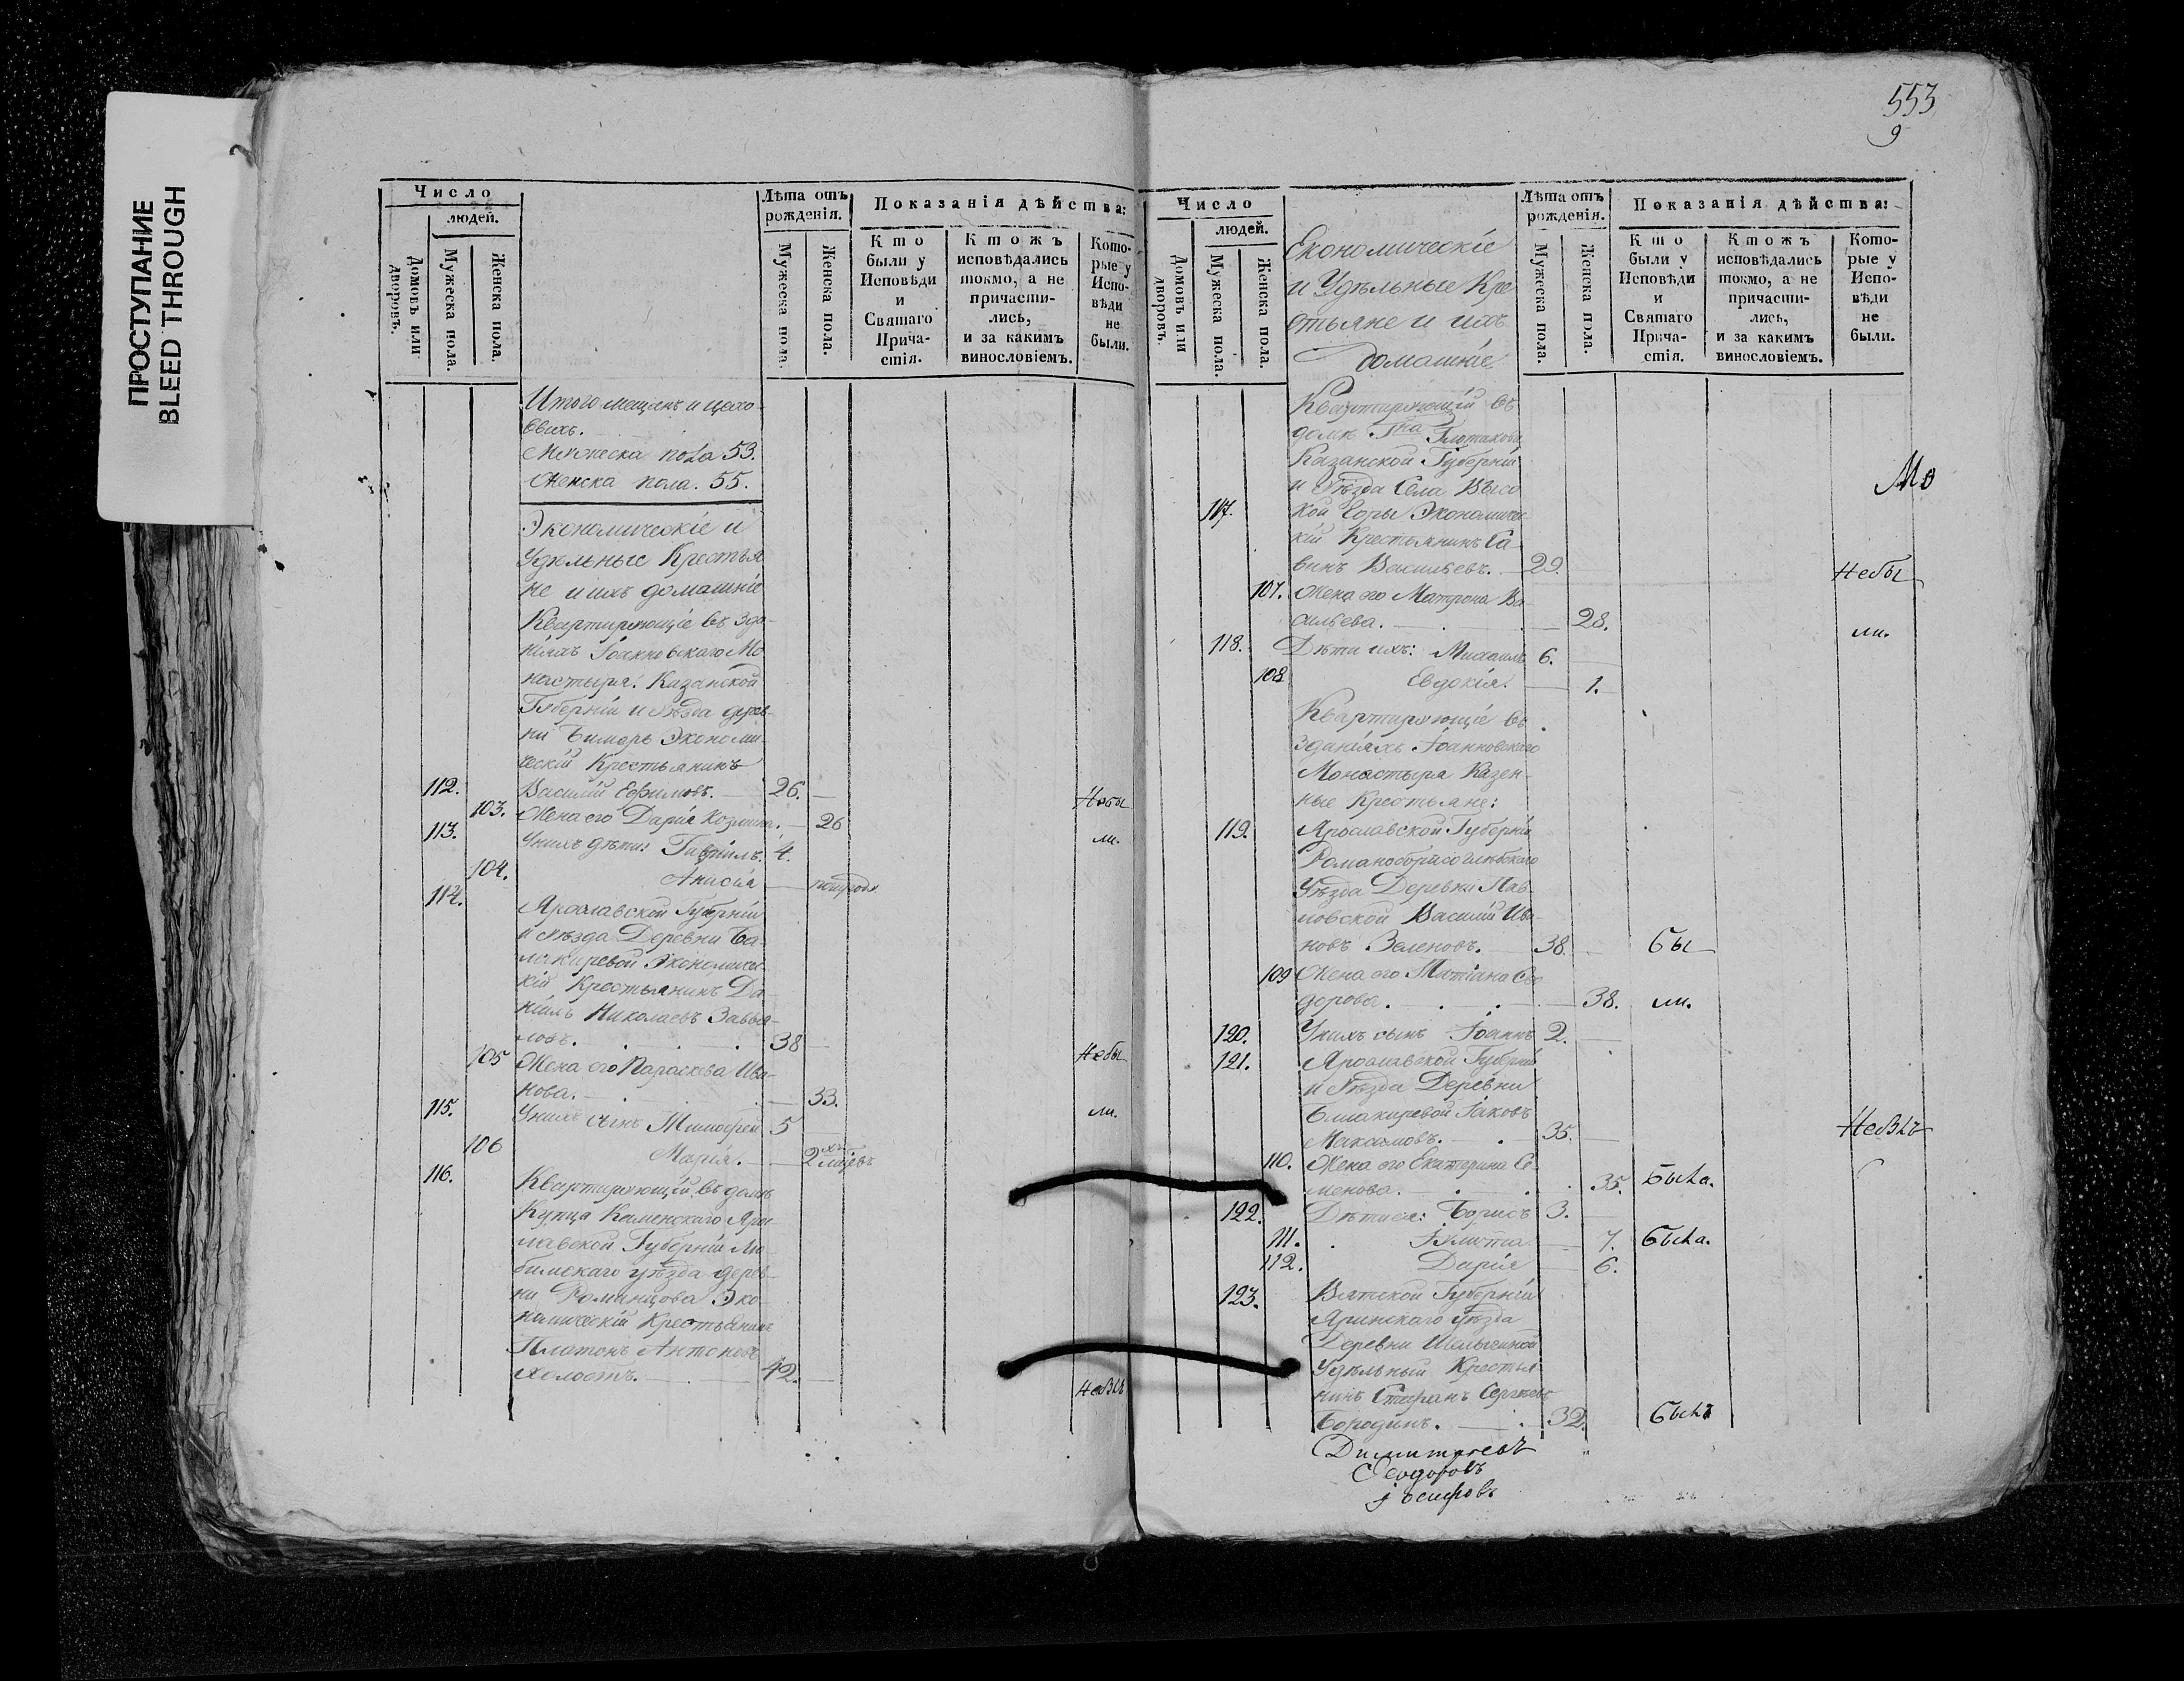 ПРОСТУПАНИЕ
BLEED THROUGH
553
9
Число
людей.
Домовъ или дворовъ.
Мужеска пола.
Женска пола.
Лѣта отъ
рожденія.
Мужеска пола.
Женска пола.
Показанія дѣйства:
Кто
были у
Исповѣди
и
Святаго
Прича-
стія.
Ктожъ
исповѣдались
токмо, а не
причасти-
лись,
и за какимъ
винословіемъ.
Кото-
рые у
Испо-
вѣди
не
были.
Итого мещанъ и цехо-
выхъ.
Мужеска пола 53.
Женска пола. 55.
Экономическіе и
Удѣльные Крестья
не и ихъ домашніе
Квартирующіе въ зда-
ніяхъ Іоанновскаго Мо
настыря: Казанской
Губерніи и Уѣзда дерев-
ни Бимерь Экономи-
ческій Крестьянинъ
112. Василій Ефимовъ. 26. Небы
103. Жена его Дарія Козмина. 26
113. Унихъ дѣти: Гавріилъ. 4. ли.
104. Анисія
114. Ярославской Губерніи
и Уѣзда Деревни Ба-
лакиревой Экономичес-
кій Крестьянинъ Да-
ніилъ Николаевъ Завья-
ловъ. 38
105 Жена его Параскева Ива- Небы
нова. 33.
115. Унихъ сынъ Тимофей 5 ли.
106 Марія. 2 хъ мцевъ
116. Квартирующій въ домѣ
Купца Каменскаго Яро-
славской Губерніи Лю-
бимскаго уѣзда дерев-
ни Романцова Эко-
номическій Крестьянинъ
Платонъ Антоновъ
холостъ. 42. Небылъ
Число
людей.
Домовъ или дворовъ.
Мужеска пола.
Женска пола.
Економическіе
и Удѣльные Кре
стьяне и ихъ
домашніе.
Лѣта отъ
рожденія.
Мужеска пола.
Женска пола.
Показанія дѣйства:
Кто
были у
Исповѣди
и
Святаго
Прича-
стія.
Ктожъ
исповѣдались
токмо, а не
причасти-
лись,
и за какимъ
винословіемъ.
Кото-
рые у
Испо-
вѣди
не
были.
Квартирующій въ
домѣ Гна
Казанской Губерніи
и Уѣзда Села Высо Мо
117. кой Горы Экономиче-
кій Крестьянинъ Са-
винъ Васильевъ. 29. Небы
107. Жена его Матрона Ва-
сильева. 28. ли.
118. Дѣти ихъ: Михаилъ 6.
108 Евдокія. 1.
Квартирующіе въ
Зданіяхъ Іоанновскаго
Монастыря Казен-
ные Крестьяне:
119. Ярославской Губерніи
Романоборисоглебскаго
Уѣзда Деревни Пав-
ловской Василій Ива-
новъ Зеленовъ. 38. Бы
109 Жена его Татіана Ѳео
дорова. 38. ли.
120. Унихъ сынъ Іоаннъ 2.
121. Ярославской Губерніи
и Уѣзда Деревни
Балакиревой Іаковъ
Максимовъ. 35. Небылъ
110. Жена его Екатерина Се-
менова. 35. Была.
122. Дѣти ея: Борисъ 3.
111. 7. Была.
112. Дарія 6.
123. Вятской Губерніи
Яринскаго уѣзда
Деревни
Удѣльный Крестья
нинъ Стефанъ Сергѣевъ
Бородинъ. 32. Былъ
Димитріевъ
Ѳеодоровъ
Іосифовъ